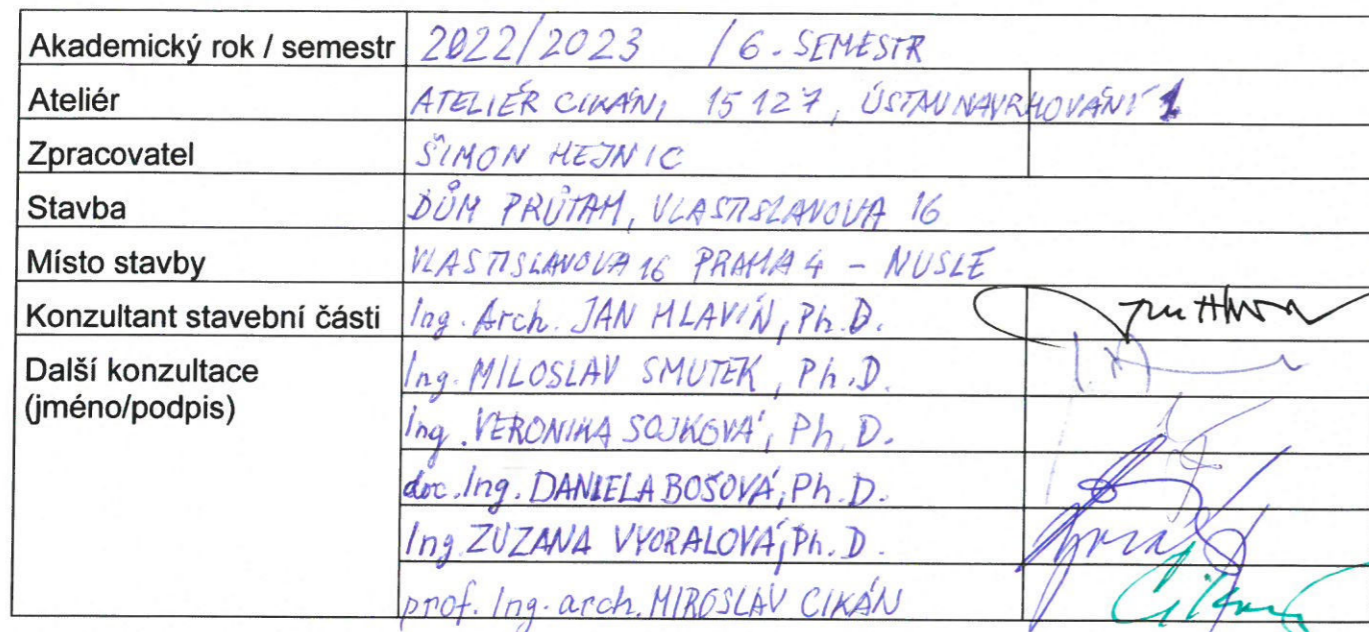 Akademický rok / semestr 2022/2023 / 6. SEMESTR
Ateliér ATELIÉR CIKÁN, 15 127, ÚSTAV NAVRHOVÁNÍ 1
Zpracovatel ŠIMON HEJNIC
Stavba DŮM PRŮTAH, VLASTISLAVOVA 16
Místo stavby VLASTISLAVOVA 16 PRAHA 4 - NUSLE
Konzultant stavební části Ing. Arch. JAN HLAVÍN, Ph.D.
Další konzultace Ing. MILOSLAV SMUTEK, Ph.D.
(jméno/podpis) Ing. VERONIKA SOJKOVÁ, Ph.D.
doc. Ing. DANIELA BOŠOVÁ, Ph.D.
Ing. ZUZANA VYORALOVÁ, Ph.D.
prof. Ing. arch. MIROSLAV CIKÁN Cikán